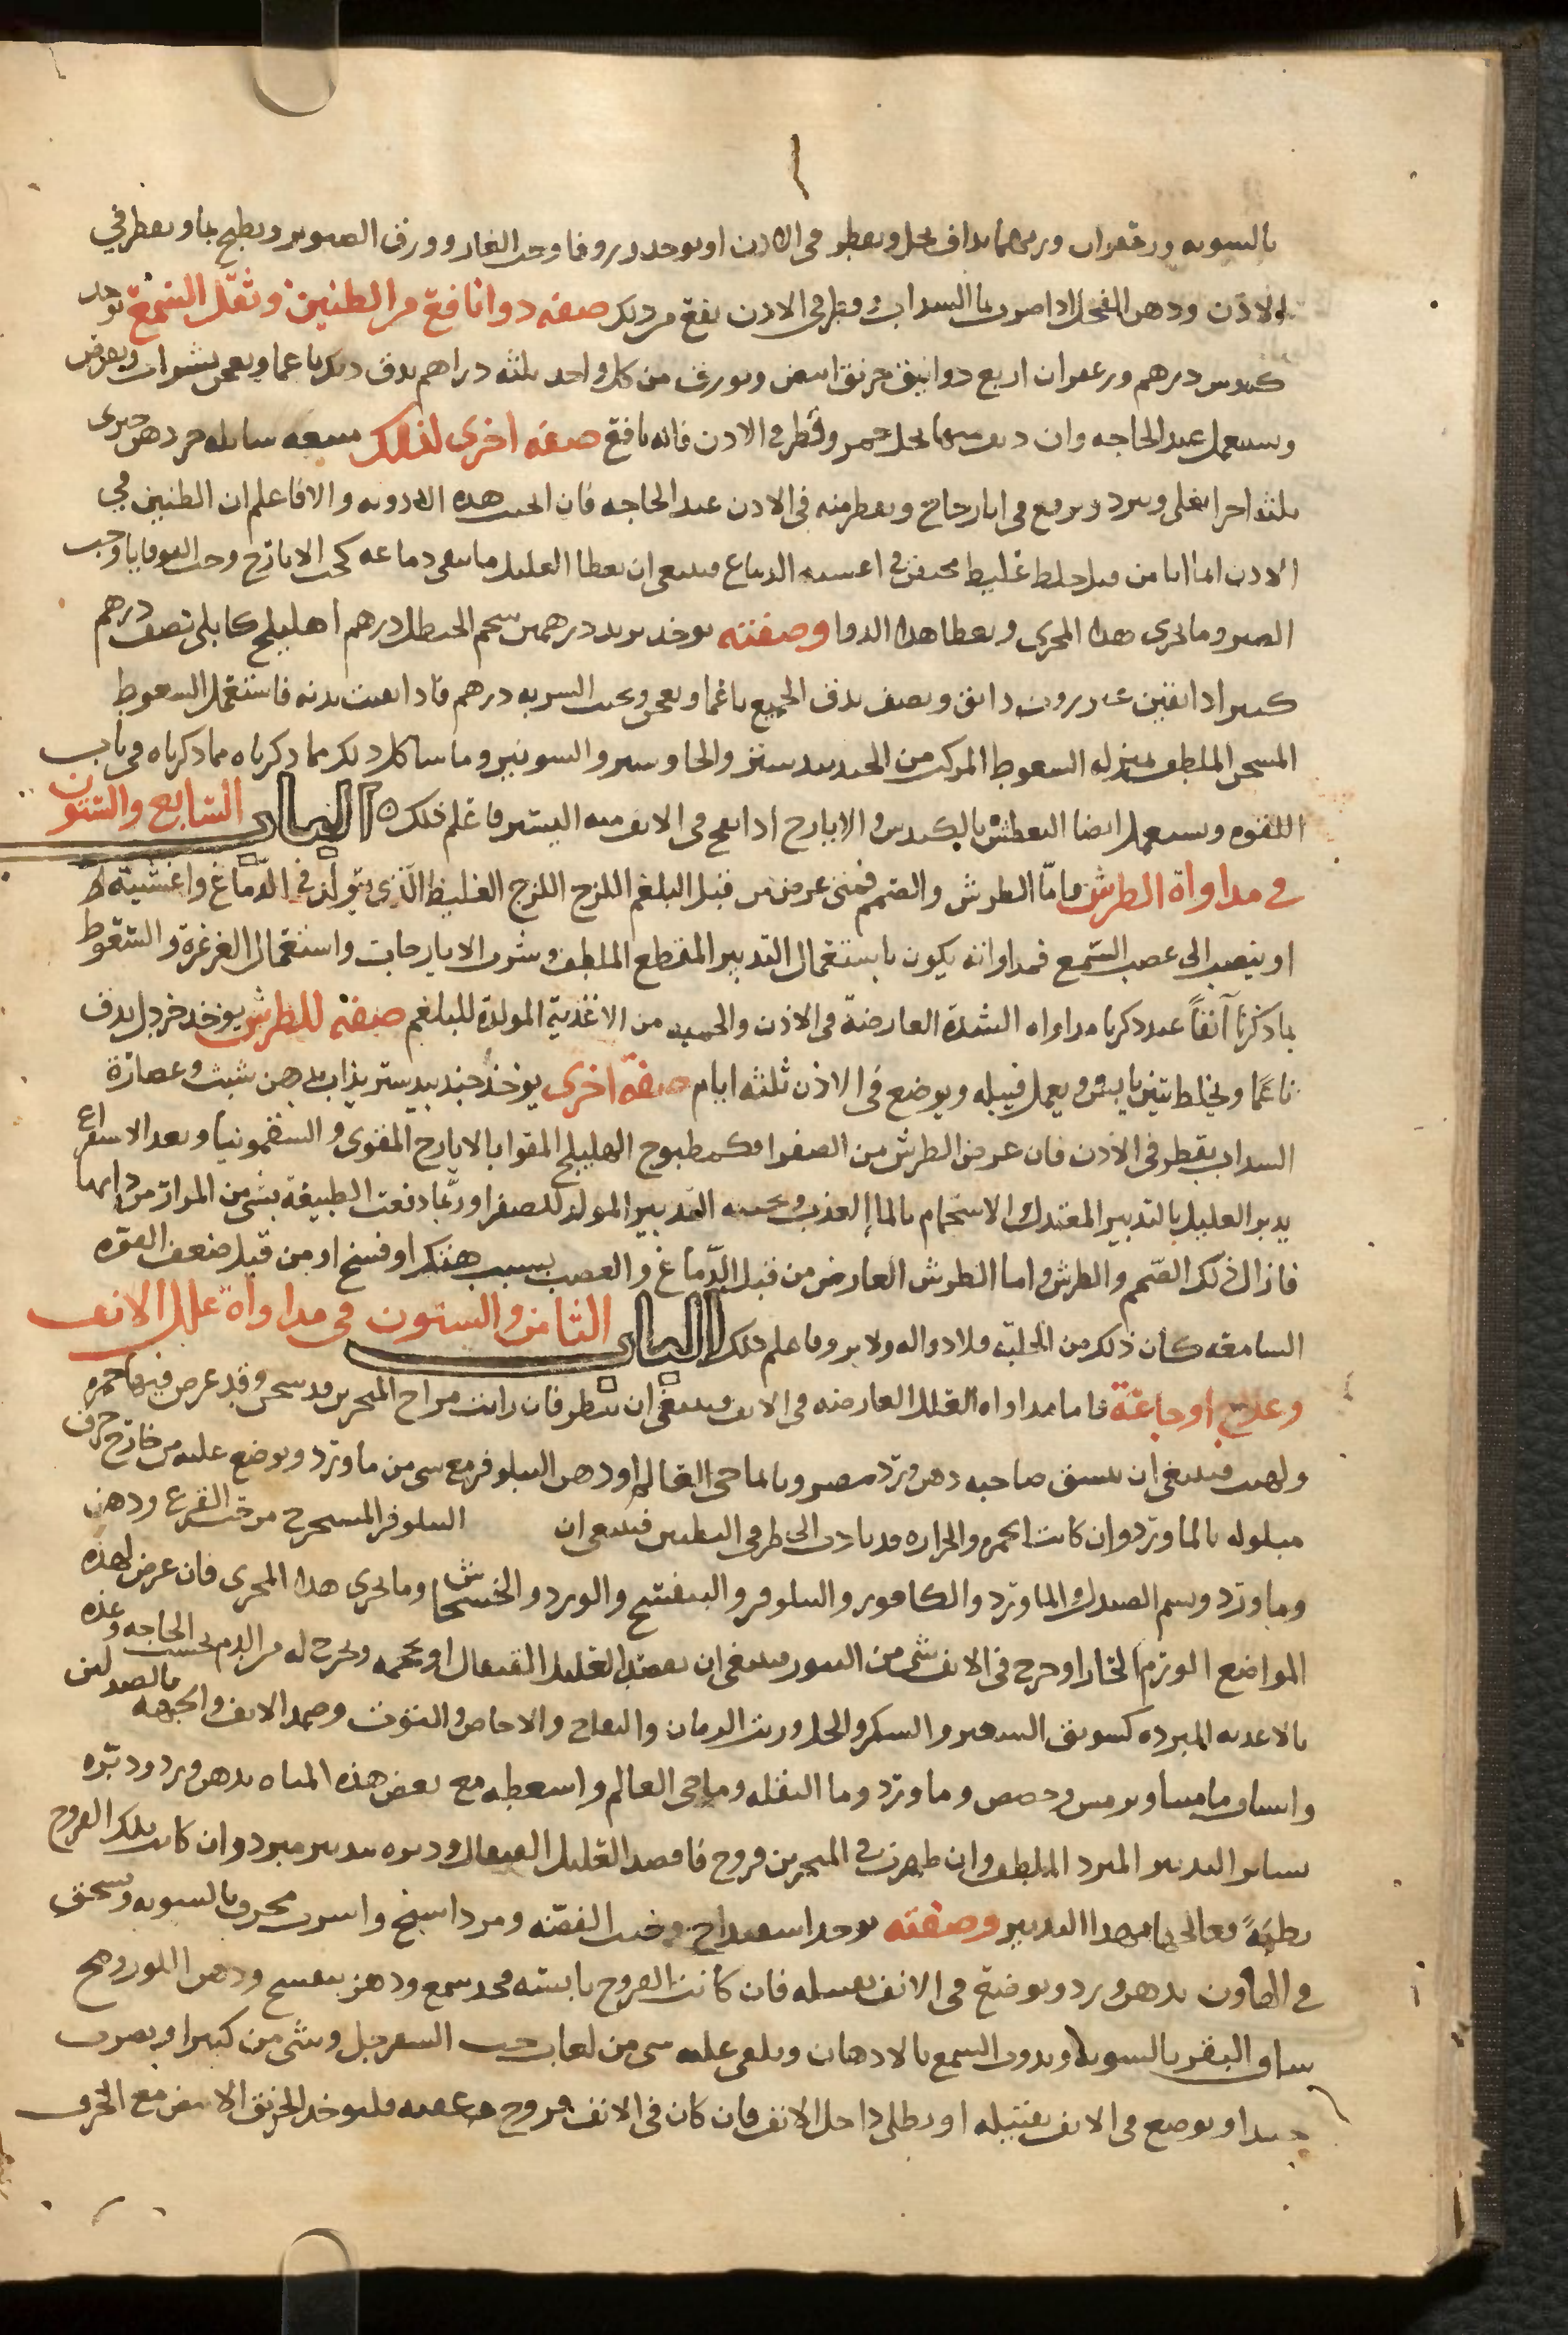 بالسويه وزعفران ومر يداف بخل ويقطر فى الاذن او يوخذ زوفا وحب الغار وورق الصنوبر ويطبخ بماء ويقطر في
الاذن ودهن الفجل اذا ضرب بماء السداب وقطر فى الاذن نفع من ذلك صفه دوا نافع من الطنين وثقل السمع يوخذ
كندس درهم وزعفران اربع دوانيق خربق ابيض وبورق من كل واحد ثلثه دراهم يدق ذلك ناعما ويعجن بشراب ويقرص
ويستعمل عند الحاجه وان ديف منها بخل خمر وقطر فى الاذن فانه نافع صفه اخرى لذلك ميعه سايله جز دهن خيرى
ثلثه اجزا يغلى ويبرد ويرفع فى انا زجاج ويقطر منه فى الاذن عند الحاجه فان انجبت هذه الادويه والا فاعلم ان الطنين في
الاذن انما اتا من قبل خلط غليظ محتقن فى اغشيه الدماغ فينبغى ان يعطا العليل ما ينقى دماغه كحب الايارج وحب القوقايا وحب
الصبر وما يجرى هذا المجرى ويعطا هذا الدوا وصفته يوخذ تربد درهمين شحم الحنظل درهم اهليلج كابلى نصف درهم
كثيرا دانقين عنزروت دانق ونصف يدق الجميع ناعما ويعجن ويحبب الشربه درهم فاذا نقيت بدنه فاستعمل السعوط
المسخن الملطف بمنزله السعوط المركب من الجندبيدستر والجاوشير والشونيز وما شاكل ذلك مما ذكرناه فى باب
اللقوه ويستعمل ايضا التعطش بالكندس والايارج اذا نفخ فى الانف منه اليسير فاعلم ذلك ه الباب السابع والستون
في مداواة الطرش فامّا الطرش والصمم فمتى عرض من قبل البلغم اللزج اللزج الغليظ الّذى يتولّد فى الدّماغ واغشيته
او ينصب الى عصب السّمع فمداواته يكون باستعمال التدبير المقطع الملطف وشرب الايارجات واستعمال الغرغرة والسّعوط
بما ذكرنا آنفاً عند ذكرنا مداواه الشدة العارضة فى الاذن والحميه من الاغذية المولدة للبلغم صفة للطرش يوخذ خردل يدق
ناعمًا ويخلط بتين يابس ويعمل فتيله ويوضع فى الاذن ثلثه ايام صفة اخرى يوخذ جندبيدستر يذاب بدهن شبث وعصارة
السداب يقطر فى الاذن فان عرض الطرش من الصفرا فكمطبوخ الهليلج المقوا بالايارج المقوى والسقمونيا وبعد الاسفراغ
يدبر العليل بالتدبير المعتدل والاستحمام بالما العذب ويجنبه التدبير المولد للصفرا وربّما دفعت الطبيعة بشى من المرار من ذاتها
فازال ذلك الصّمم والطرش واما الطرش العارض من قبل الدّماغ والعصب بسبب هتك او فسخ او من قبل ضعف القوه
السامعه كان ذلك من الخلقه فلا دوا له ولا برو فاعلم ذلك الباب الثامن والستون فى مداواة علل الانف
وعلاج اوجاعة فاما مداواه العلل العارضه فى الانف فينبغى ان ينظر فان رايت مزاج المنخرين قد سخن وقد عرض فيها حمره
ولهيب فينبغى ان ينشق صاحبه دهن ورد مضروب بما حى العالم او دهن النيلوفر مع شى من ماورد ويوضع عليه من خارج خرق
مبلوله بالماورد وان كانت الحمره والحراره قد تادت الى طرفى البطنين فينبغى ان النيلوفر المستخرج من حب القرع ودهن
وماورد ويشم الصندل والماورد والكافور والنيلوفر والبنفسج والورد والخشخاش وما يجرى هذا المجرى فان عرض لهذه
المواضع الورم الحار او خرج فى الانف شى من البثور فينبغى ان يفصد العليل القيفال او يحجمه ويخرج له من الدم بحسب الحاجه وغذه
بالاغذيه المبرده كسويق الشعير والسكر والخل ورب الرمان والتفاح والاجاص والتوت وضمد الانف والجبهه بالصندلين
واشياف ماميثا وبوش وحضض وماورد وما البقله وما حى العالم واسعطه مع بعض هذه المياه بدهن ورد ودبّره
بساير التدبير المبرد الملطف وان ظهرت فى المنخرين قروح فافصد العليل القيفال ودبره بتدبير مبرد وان كانت تلك القروح
رطبةً فعالجها بهذا التدبير وصفته يوخذ اسفيداج وخبث الفضه ومرداسنج واسرب محرق بالسويه ويسحق
فى الهاون بدهن ورد ويوضع فى الانف بفتيله فان كانت القروح يابسه فخذ شمع ودهن بنفسج ودهن اللوز ومخ
ساق البقر بالسويه ويذوب الشمع بالادهان ويلقى عليه شى من لعاب حب السفرجل وشى من كثيرا ويضرب
جيدا ويوضع فى الانف بفتيله او يطلى داخل الانف فان كان فى الانف قروح عفنه فليوخذ الخربق الابيض مع الخرف